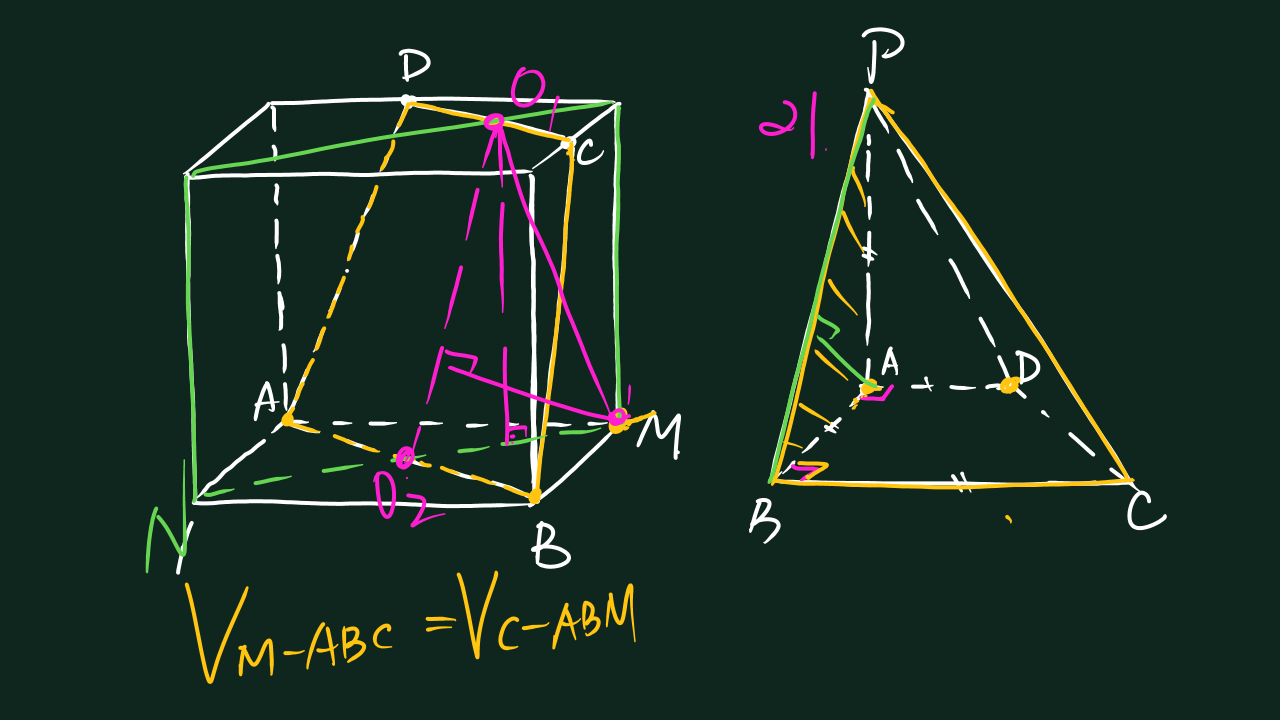 D
O₁
C
A
M
O₂
N
B
V_{M-ABC} = V_{C-ABM}
P
21.
A
D
B
C